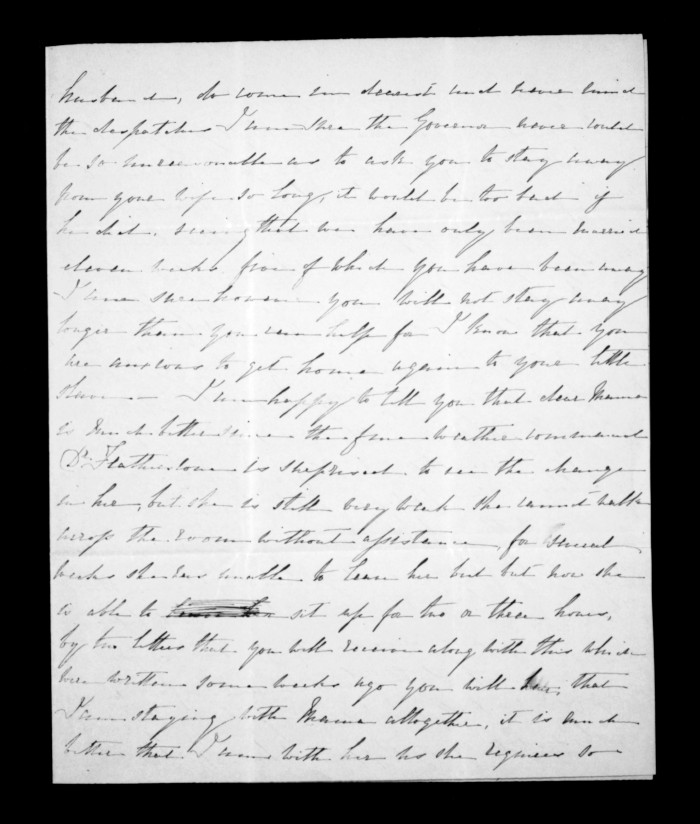 husband, do come in decest and never mind
the despatches I am shea the Govenor never would
be so unreasonable as to ask you to stay away
from your wife so long, it would be too bad if
he did, seeing that we have only been married
eleven weeks five of which you have been away
I am sure however you will not stay away
longer than you can help for I know that you
are anxious to get home again to your little
I am happy to tell you that dear Mama
is much better since the fine weather commenced
Dr. Featherstone is surprised to see the change
in her, but she is still very weak she cannot walk
across the room without assistance, for several
weeks she was unable to leave her bed but now she
is able to sit up for two or three hours,
by two letters that you will receive along with this which
were written some weeks ago you will that
I am staying with Mama altogether, it is much
better that I am with her as she requires so